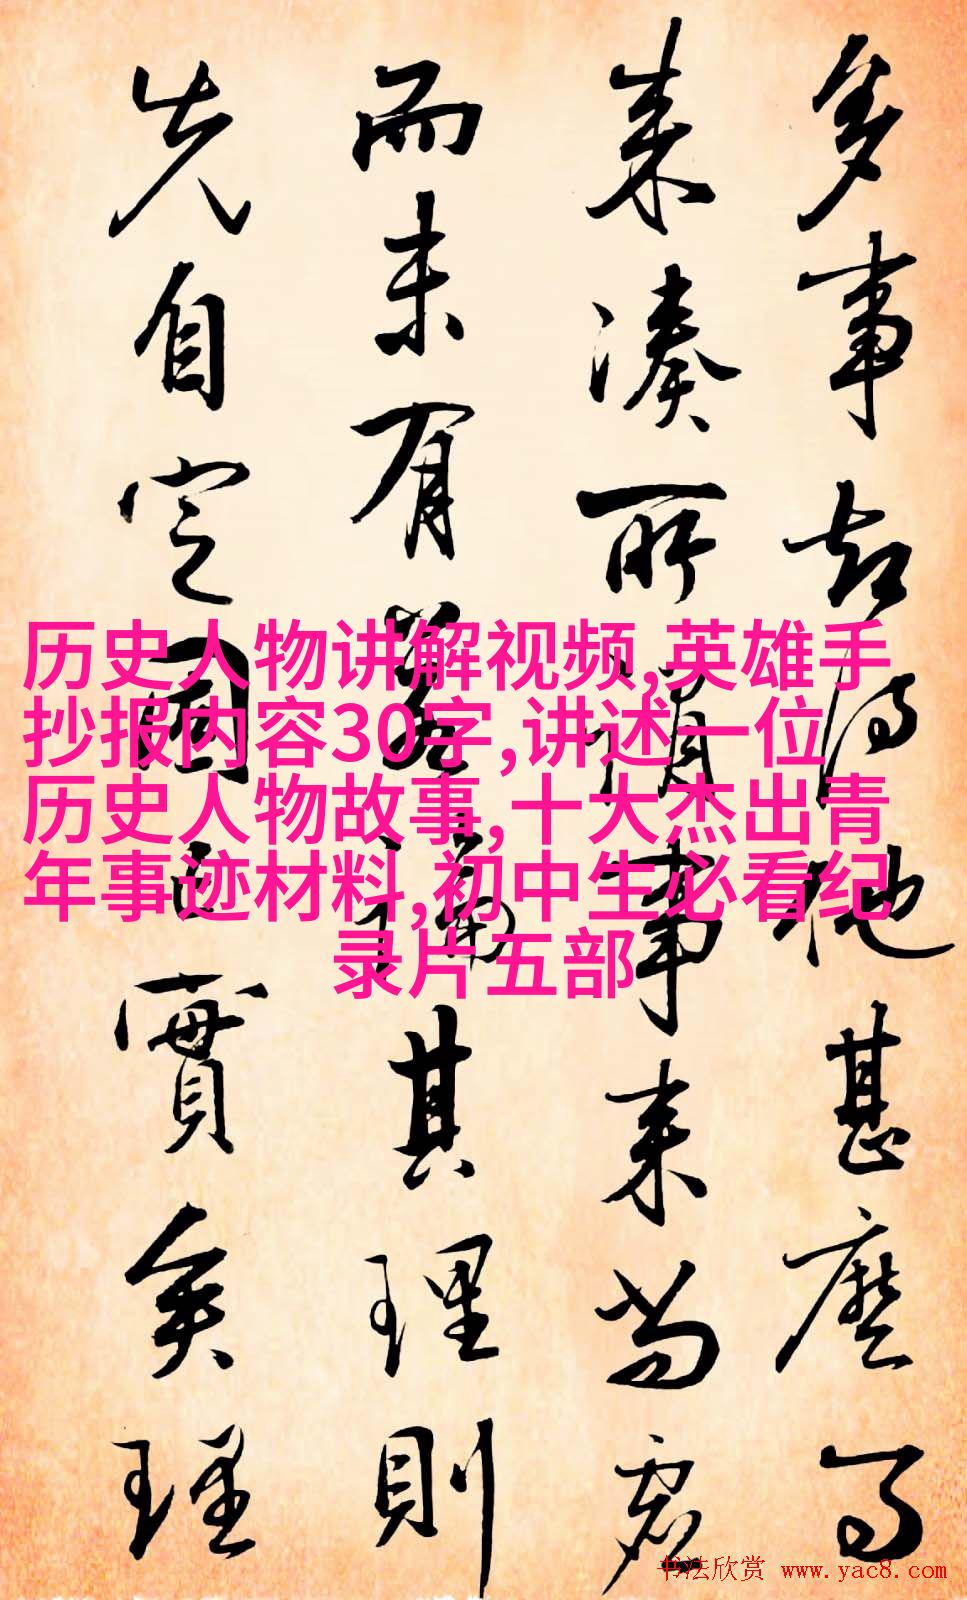 多事却得他甚麼了
来湊所謂事来尚虚
而未有若論其理則
先自定固已實矣理
历史人物讲解视频,英雄手
抄报内容30字,讲述一位
历史人物故事,十大杰出青
年事迹材料,初中生必看纪
录片五部
书法欣赏 www.yac8.com